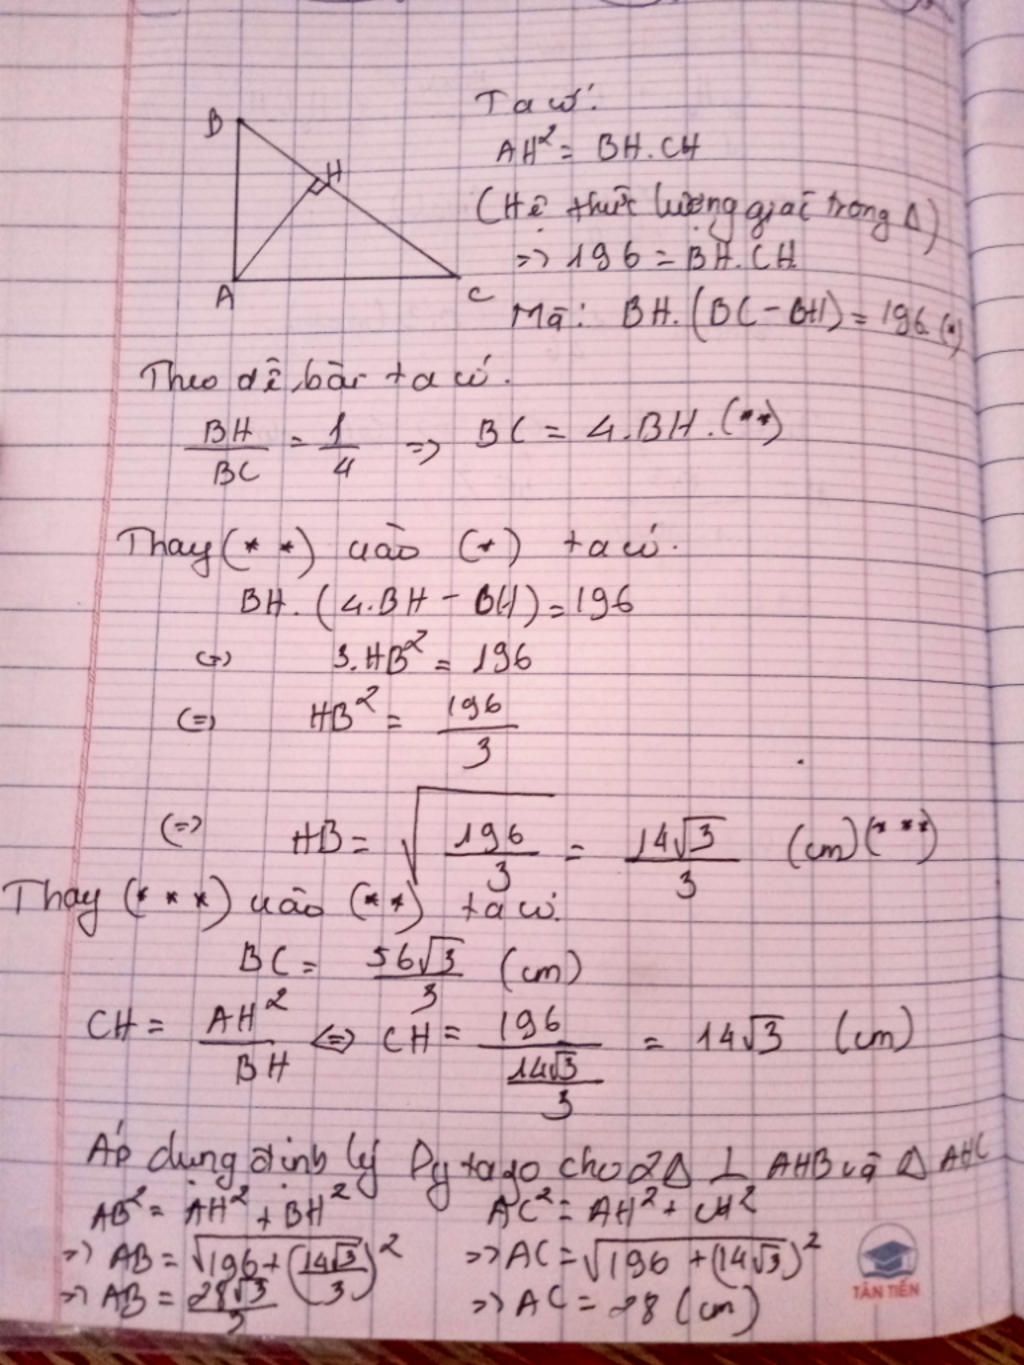 Ta có:
B
AH² = BH.CH
H
(Hệ thức lượng giác trong Δ)
=> 196 = BH.CH
A
C
Mà: BH.(BC - BH) = 196 (*)
Theo đề bài ta có.
BH/BC = 1/4 => BC = 4.BH. (**)
Thay (**) vào (*) ta có.
BH.(4.BH - BH) = 196
(=) 3.HB² = 196
(=) HB² = 196/3
(=) HB = √(196/3) = 14√3/3 (cm) (***)
Thay (***) vào (**) ta có.
BC = 56√3/3 (cm)
CH = AH²/BH <=> CH = 196/(14√3/3) = 14√3 (cm)
Áp dụng định lý Pytago cho 2Δ ⊥ AHB và Δ AHC
AB² = AH² + BH² AC² = AH² + CH²
=> AB = √(196 + (14√3/3)²) => AC = √(196 + (14√3)²)
=> AB = 28√3/3 => AC = 28 (cm)
TÂN TIẾN